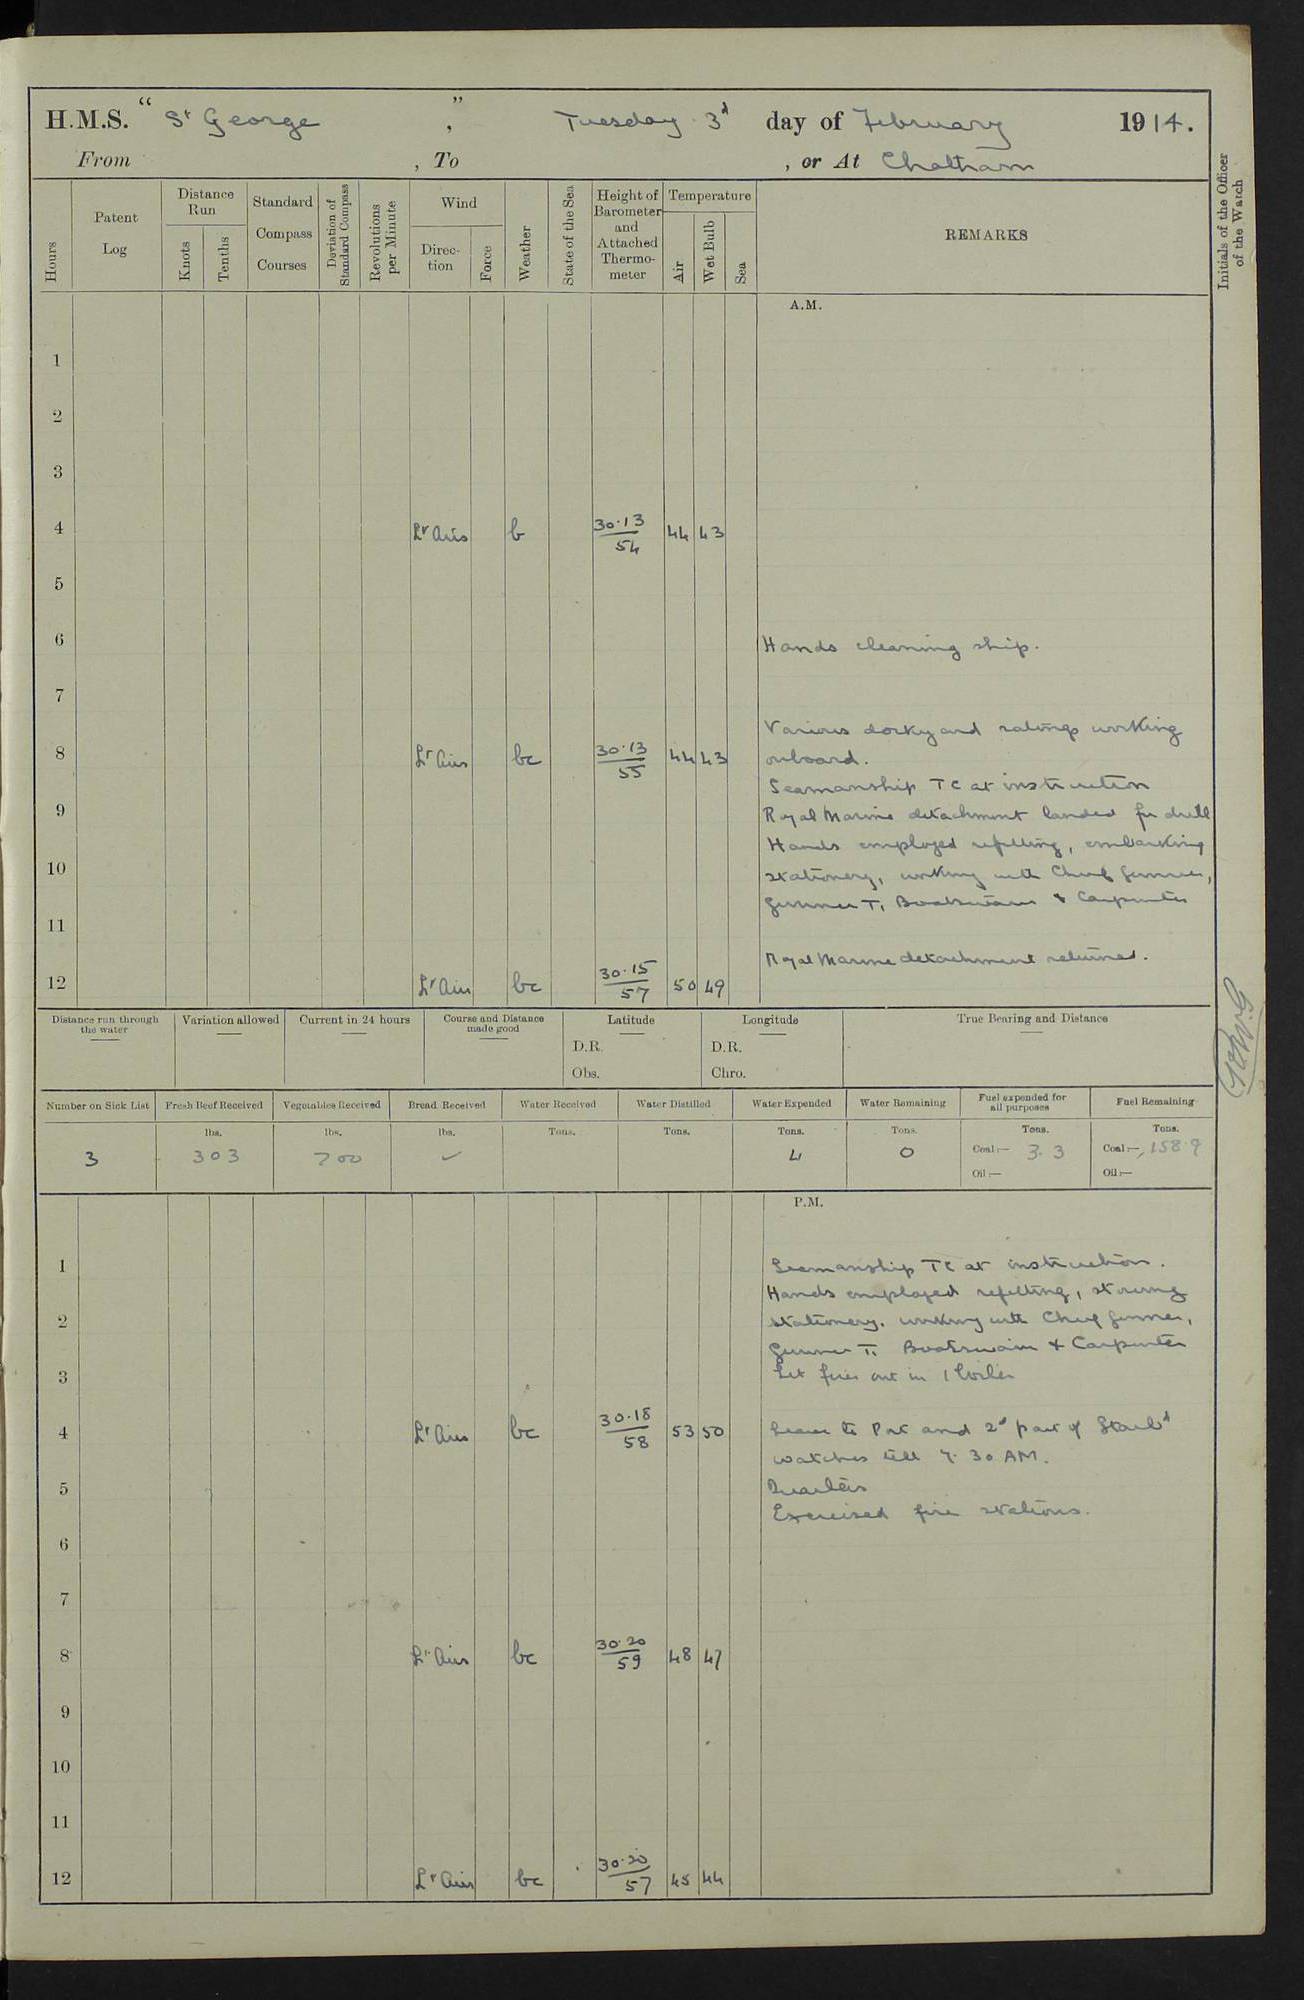 H.M.S. " St George " , Tuesday 3d day of February 1914.
From , To , or At Chatham
Hours
Patent Log
Distance Run
Knots
Tenths
Standard Compass Courses
Deviation of Standard Compass
Revolutions per Minute
Wind
Direction
Force
Weather
State of the Sea
Height of Barometer and Attached Thermometer
Temperature
Air
Wet Bulb
Sea
REMARKS
Initials of the Officer of the Watch
A.M.
1
2
3
4 Lr Airs b 30.13/54 44 43
5
6 Hands cleaning ship.
7
Various dockyard ratings working
8 Lr Airs bc 30.13/55 44 43 onboard.
Seamanship TC at instruction
9 Royal Marine detachment landed for drill
Hands employed refitting, embarking
10 stationery, working with Chief Gunner,
Gunner T, Boatswain & Carpenter
11
Royal Marine detachment returned.
12 Lr Airs bc 30.15/57 50 49
Distance run through the water
Variation allowed
Current in 24 hours
Course and Distance made good
Latitude
D.R.
Obs.
Longitude
D.R.
Chro.
True Bearing and Distance
Number on Sick List
3
Fresh Beef Received
lbs.
303
Vegetables Received
lbs.
700
Bread Received
lbs.
✓
Water Received
Tons.
Water Distilled
Tons.
Water Expended
Tons.
4
Water Remaining
Tons.
0
Fuel expended for all purposes
Tons.
Coal:— 3.3
Oil:—
Fuel Remaining
Tons.
Coal:— 158.9
Oil:—
P.M.
1 Seamanship TC at instruction.
Hands employed refitting, storing
2 stationery. working with Chief Gunner,
Gunner T. Boatswain & Carpenter
3 Let fires out in 1 boiler
4 Lr Airs bc 30.18/58 53 50 Leave to Port and 2d part of Starbd
watches till 7.30 AM.
5 Quarters
Exercised fire stations.
6
7
8 Lr Airs bc 30.20/59 48 47
9
10
11
12 Lr Airs bc 30.20/57 45 44